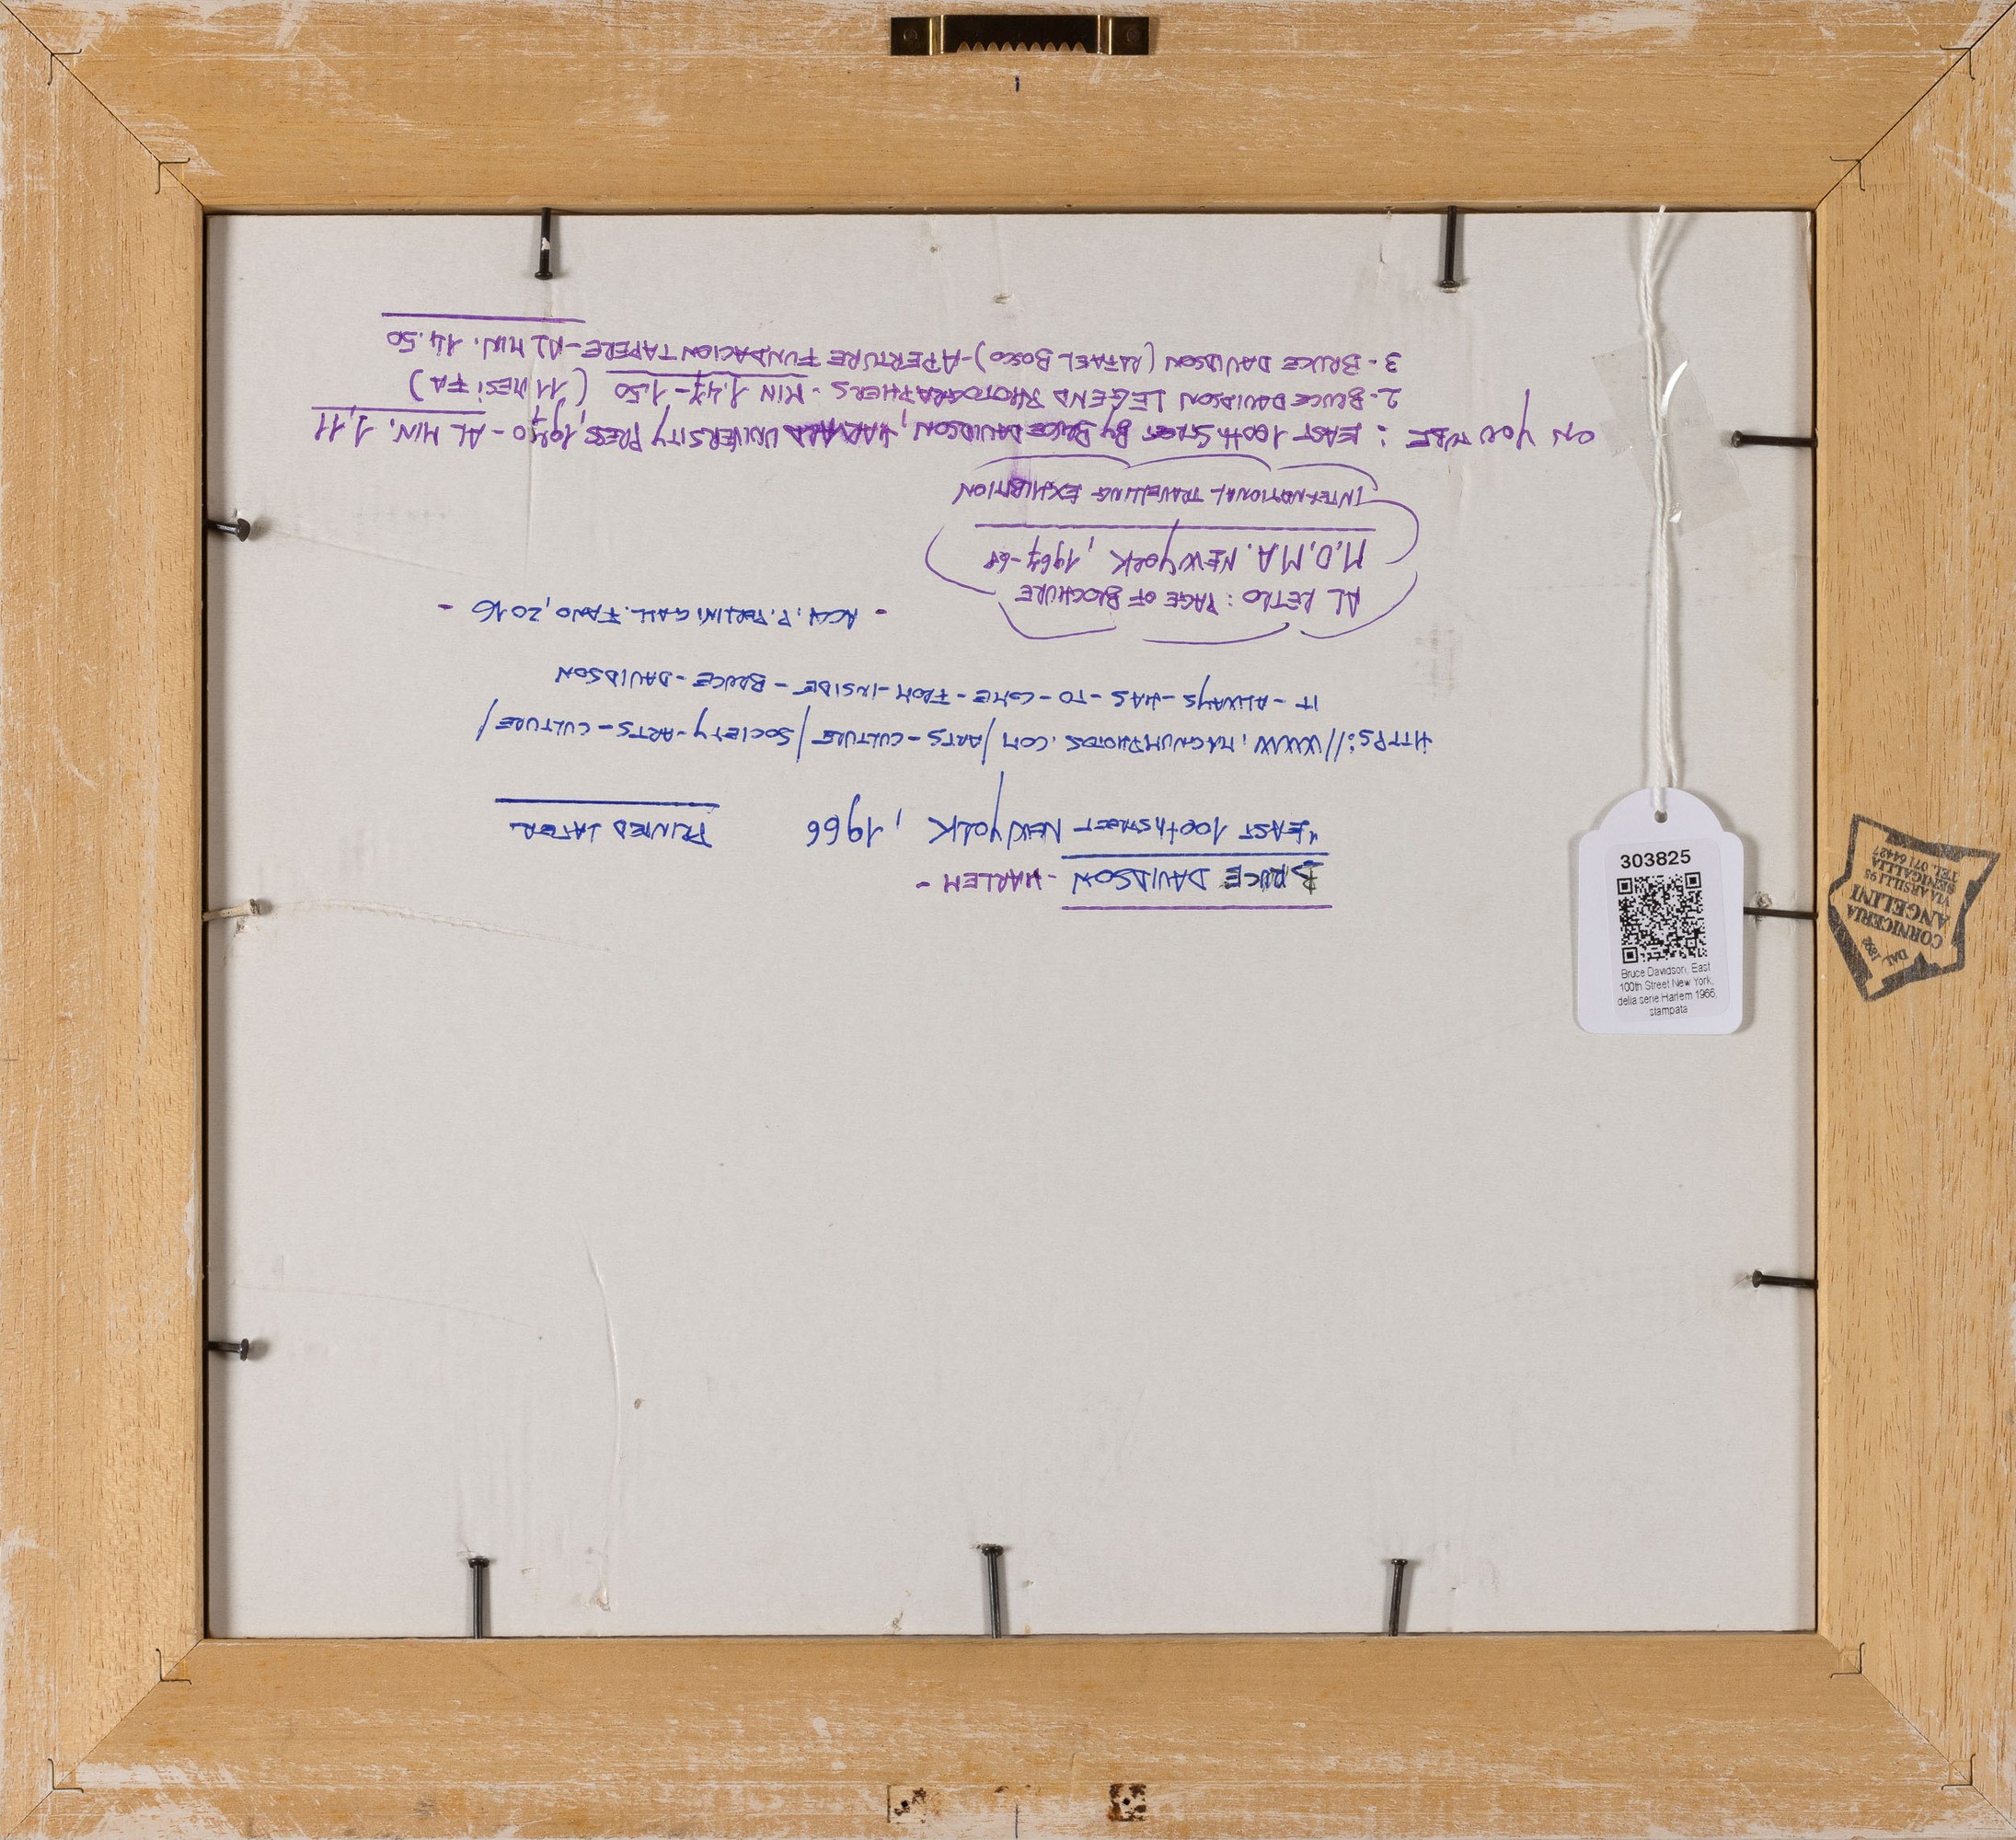 BRUCE DAVIDSON - HARLEM -
"EAST 100th STREET NEW YORK, 1966 PRINTED LATER
HTTPS://WWW.MAGNUMPHOTOS.COM/ARTS-CULTURE/SOCIETY-ARTS-CULTURE/
IT-ALWAYS-HAS-TO-COME-FROM-INSIDE-BRUCE-DAVIDSON
- ACQ. P. GALL. FANO, 2016 -
AL RETRO: PAGE OF BROCHURE
M.O.M.A. NEW YORK, 1967-68
INTERNATIONAL TRAVELLING EXHIBITION
ON YOU TUBE: EAST 100th STREET By BRUCE DAVIDSON, HARVARD UNIVERSITY PRESS, 1970 - AL MIN. 1,11
2- BRUCE DAVIDSON LEGEND PHOTOGRAPHERS - MIN 1,47-1.50 (11 MESI FA)
3- BRUCE DAVIDSON (RAFAEL BOSCO) - APERTURE FUNDACION TAPERE - AL MIN. 14.50
303825
Bruce Davidson, East
100th Street New York,
della serie Harlem 1966,
stampata
DAL 1892
CORNICERIA
ANGELINI
VIA ARSILLI 95
SENIGALLIA
TEL. 071 64427